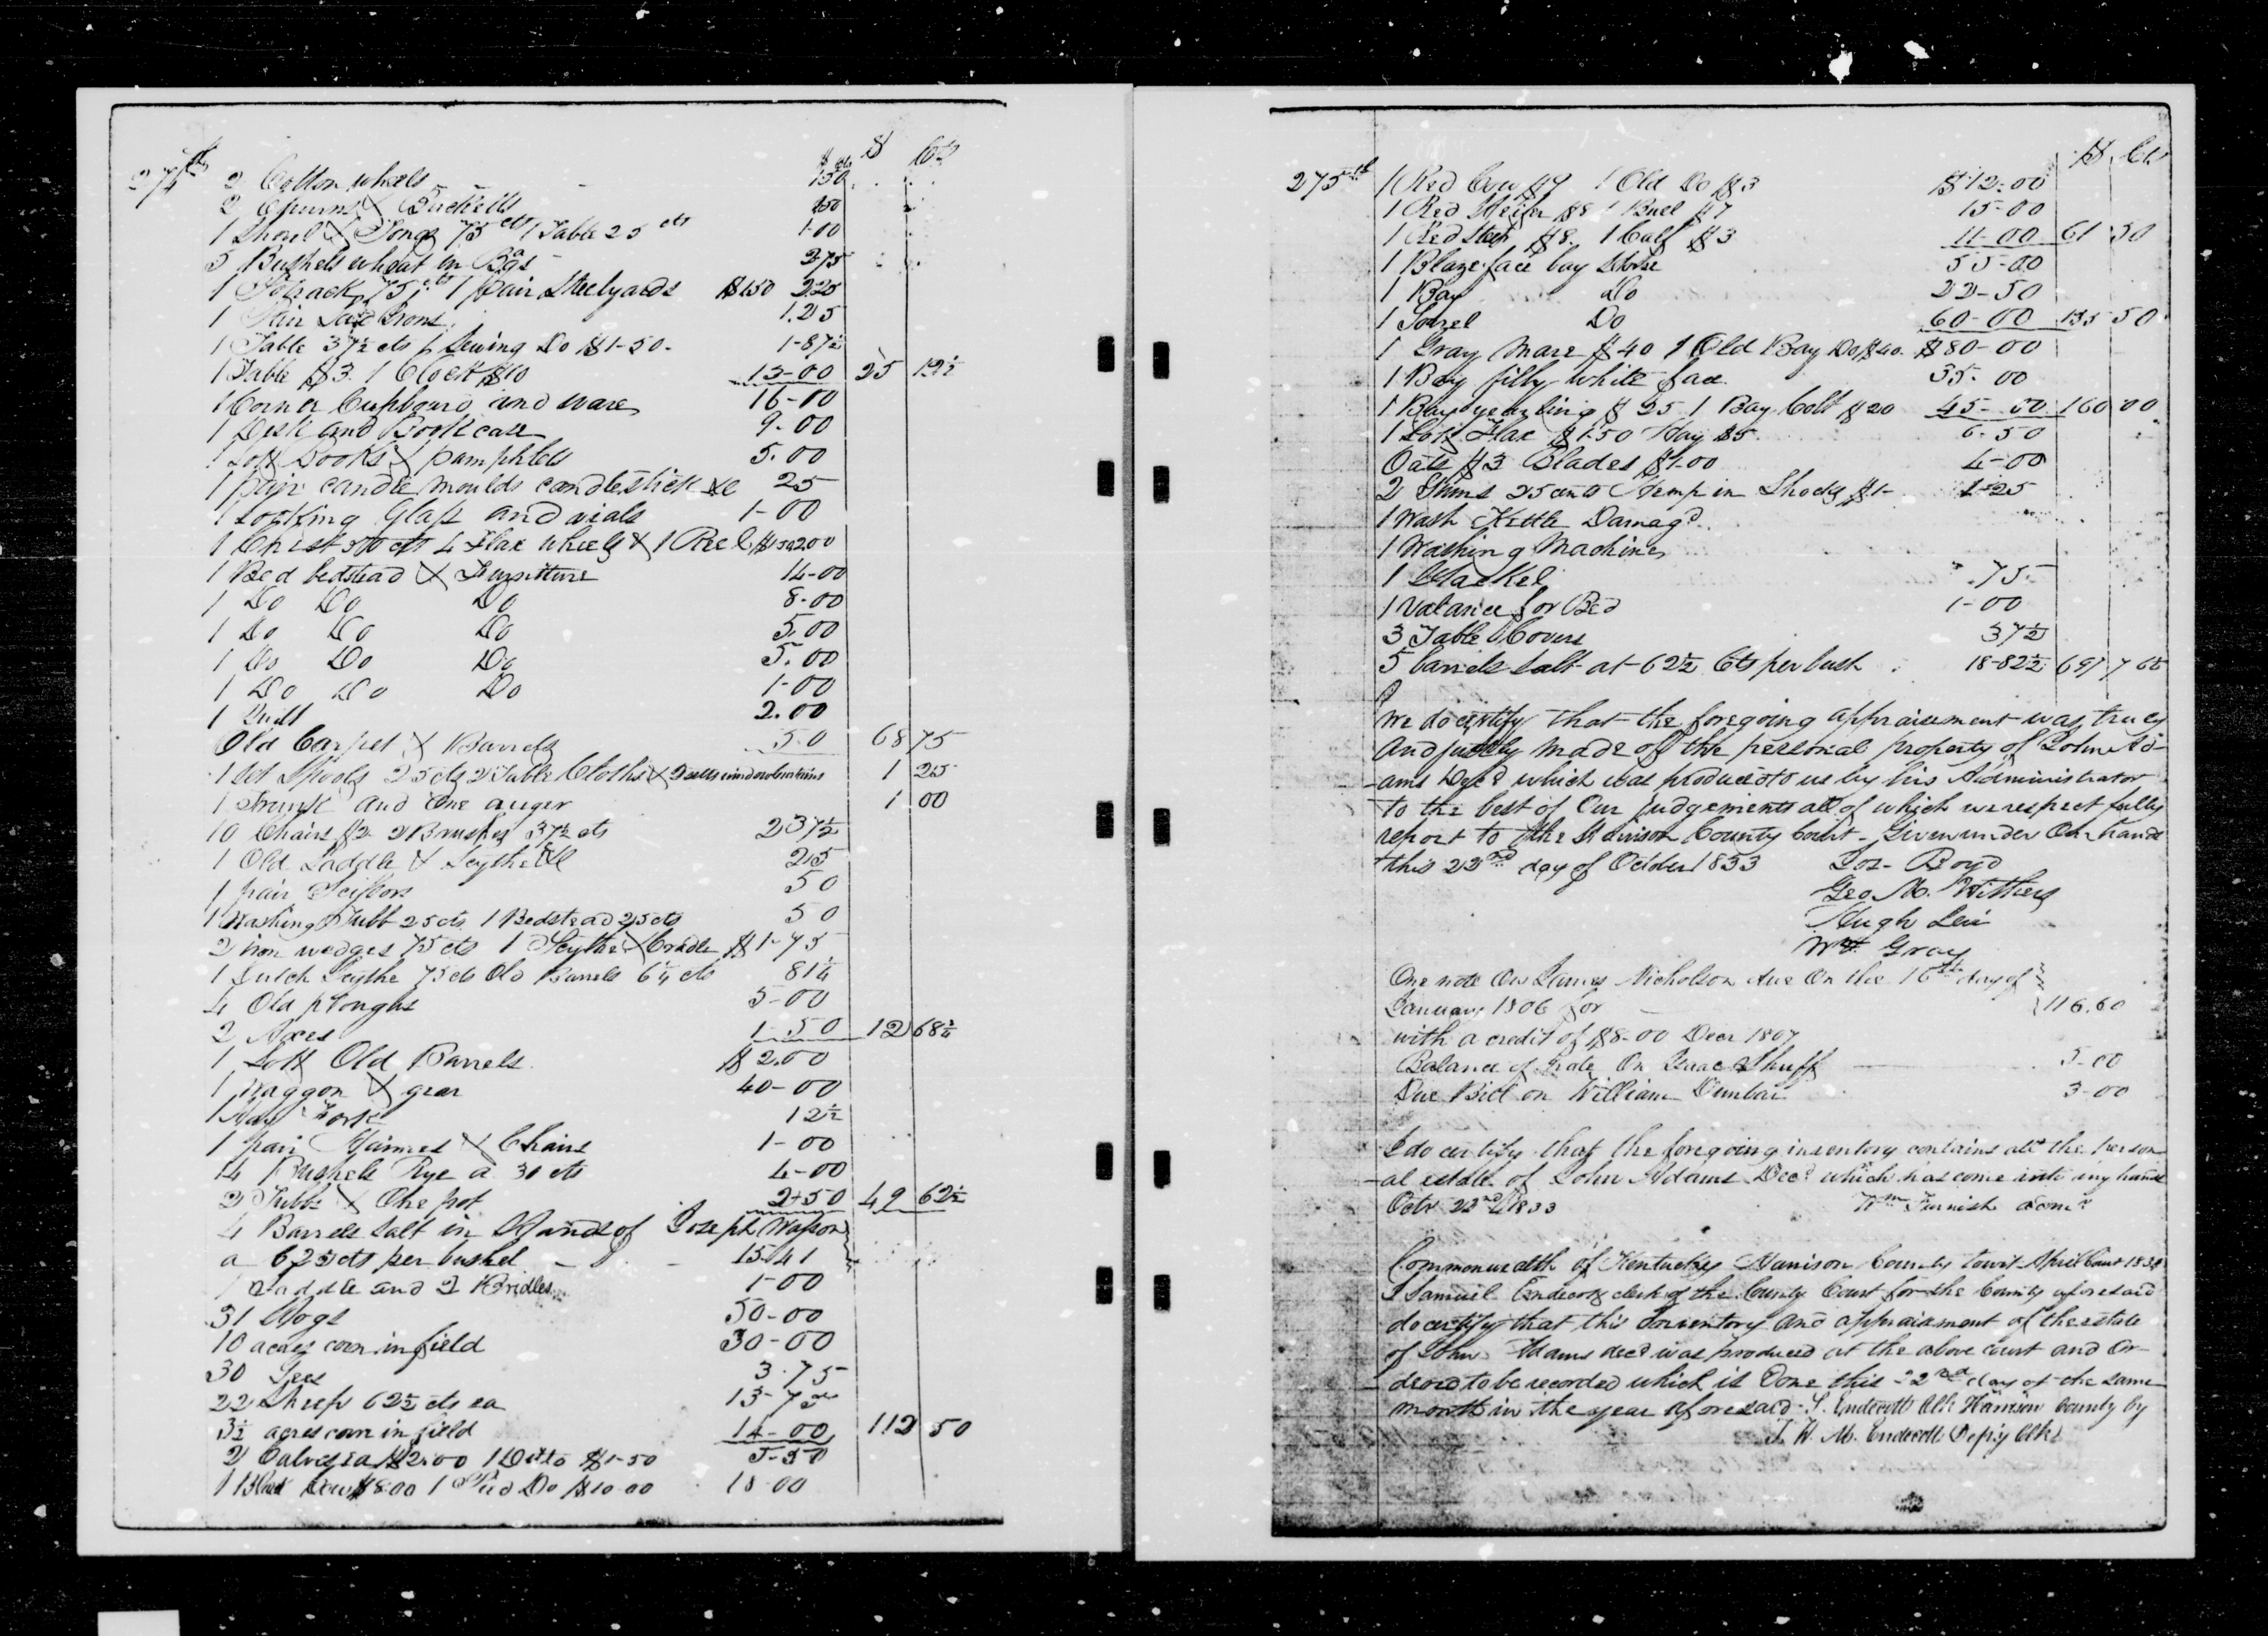 274th
$ cts $ Cts
2 Cotton wheels - 150
2 Churns & Bucketts 150
1 Shovel & Tongs 75 cts 1 Table 25 cts 1-00
5 Bushels wheat in Bags 375
1 75 cts 1 pair Steelyards $150 225
1 Pair Irons 1.25
1 Table 37½ cts 1 Sewing Do $1-50- 1-87½
1 Table $3. 1 Clock $10 13-00 25 12½
1 Corner Cupboard and ware 16-00
1 Desk and Book case 9-00
1 Lott books & pamphlets 5.00
1 pair candle moulds candlestick &c 25
1 Looking Glass and vials 1-00
1 Chest 50 cts 4 Flax wheels & 1 Reel $150 200
1 Bed bedstead & Furniture 14-00
1 Do Do Do 8-00
1 Do Do Do 5.00
1 Do Do Do 5.00
1 Do Do Do 1-00
1 Quilt 2.00
Old Carpet & Barrels 50 68 75
1 set Spools 25 cts 2 Table Cloths & 1 25
1 trunk and One auger 1 00
10 Chairs $2 2 Brushes 37½ cts 2 37½
1 Old Saddle & Scythe &c 25
1 pair Scissors 50
1 Washing Tubb 25 cts 1 Bedstead 25 cts 50
2 iron wedges 75 cts 1 Scythe & Cradle $1-75
1 Dutch Scythe 75 cts Old Barrels 6¼ cts 81¼
4 Old ploughs 5-00
2 Axes 1-50 12 68¾
1 Lott Old Barrels $2.00
1 Waggon & gear 40-00
1 Hay Fork 12½
1 pair Hames & Chains 1-00
14 Bushels Rye a 30 cts 4-00
2 Tubbs & One pot 2-50 49 62½
4 Barrels Salt in Hands of Joseph Wasson
a 62½ cts per bushel - 15.41
1 Saddle and 2 Bridles 1-00
31 Hogs 50-00
10 acres corn in field 30-00
30 Gees 3.75
22 Sheep 62½ cts ea 13-75
3½ acres corn in field 14-00 112 50
2 Calves ea $2.00 1 Ditto $1-50 5-50
1 Black Cow $8.00 1 Pied Do $10.00 18-00
275th
$ Cts
1 Red Cow $9 1 Old Do $3 $12-00
1 Red Heifer $8 1 Bull $7 15-00
1 Red Steer $8. 1 Calf $3 11-00 61 50
1 Blaze face bay Horse 55-00
1 Bay Do 22-50
1 Sorrel Do 60-00 135 50
1 Gray Mare $40 1 Old Bay Do $40. $80-00
1 Bay filly white face 35-00
1 Bay yearling $25 1 Bay Colt $20 45-00 160 00
1 Lott Flax $1.50 Hay $5 6.50
Oats $3 Blades $1-00 4-00
2 25 cents Hemp in Shocks $1- 1-25
1 Wash Kettle Damagd.
1 Washing Machine
1 Hackel .75
1 Valance for Bed 1-00
3 Table Covers 37½
5 barrels Salt at 62½ Cts per bush 18-82½
We do certify that the foregoing appraisement was truly
and justly made of the personal property of John Ad-
-ams Decd which was produced to us by his Administrator
to the best of Our judgements all of which we respectfully
report to the Harrison County Court - Given under Our hands
this 22nd day of October 1833 Jos- Boyd
Geo. M. Withers
Hugh Levi
Wm Gray
One note On James Nicholson due On the 16th day of
January 1806 for 116.60
with a credit of $8-00 Decr 1807
Balance of Note On Isaac Shuff - 5-00
Due Bill on William Dunbar 3-00
I do certify that the foregoing inventory contains all the person
-al estate of John Adams Decd which has come into my hands
Octr 22nd 1833 Wm Furnish Admr
Commonwealth of Kentucky Harrison County towit April Court 1834
I Samuel Endicott clerk of the County Court for the County aforesaid
do certify that this Inventory and appraisment of the estate
of John Adams decd was produced at the above court and Or-
dered to be recorded which is Done this 22nd day of the same
month in the year aforesaid - S. Endicott Clk Harrison County by
J. W. M. Endicott Depty Clk